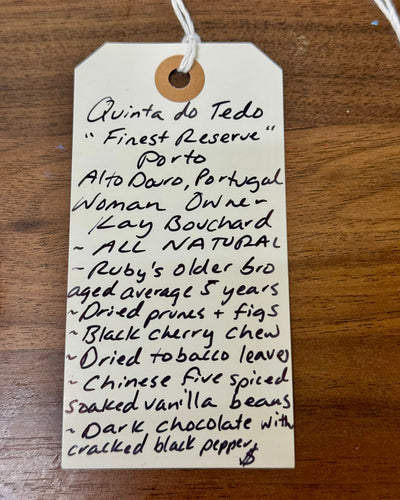 Quinta do Tedo
"Finest Reserve"
Porto
Alto Douro, Portugal
Woman Owner
Kay Bouchard
~ ALL NATURAL
~ Ruby's older bro
aged average 5 years
~ Dried prunes + figs
~ Black cherry chew
~ Dried tobacco leaves
~ Chinese five spiced
soaked vanilla beans
~ Dark chocolate with
cracked black pepper
$